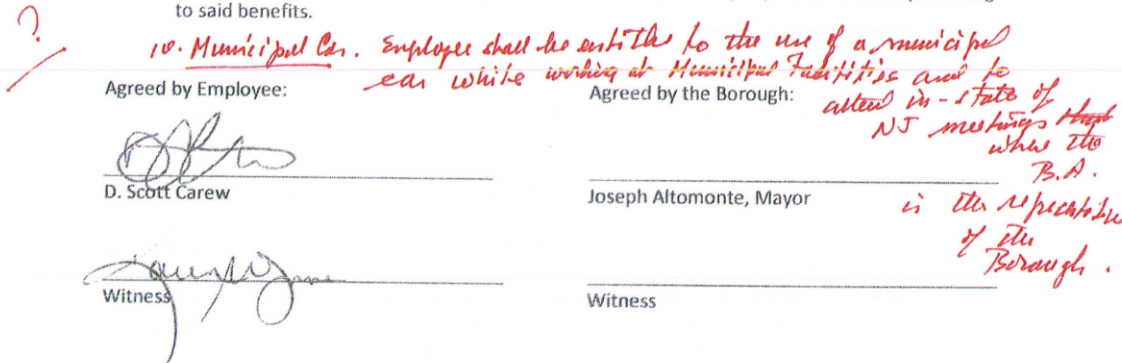 to said benefits.
?
10. Municipal Car. Employee shall be entitled to the use of a municipal
car while working at Municipal Facilities and to
attend in-state of
NJ meetings that
where the
B.A.
is the representative
of the
Borough.
Agreed by Employee:
Agreed by the Borough:
D. Scott Carew
Joseph Altomonte, Mayor
Witness
Witness